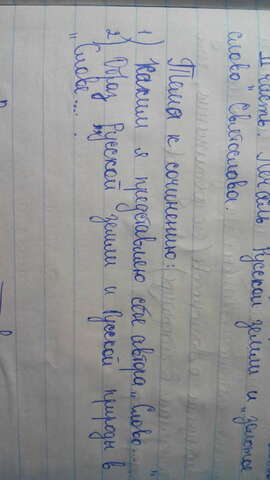 II часть. Печаль Русской земли и „золотое
слово" Святослава.
Тема к сочинению:
1) Каким я представляю себе автора „Слово..."
2) Образ Русской земли и Русской природы в
„Слове....